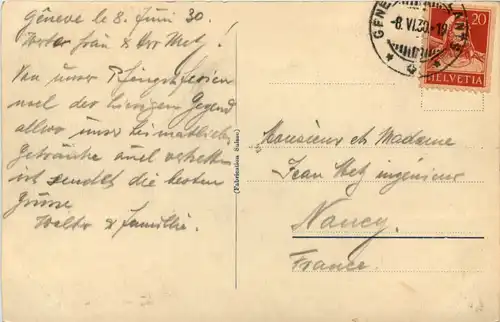 Genève le 8. Juni 30.
Werter Frau & Herr Metz!
Von unser Pfingstferien
und der hiesigen Gegend
allwo unser heimatliche
Getränke
ist sendet die besten
Grüsse
Walter & Familie.
(Fabrication Suisse)
GENÈVE
-8.VI.30.-19
20
HELVETIA
Monsieur et Madame
Jean Metz ingénieur
Nancy.
France.